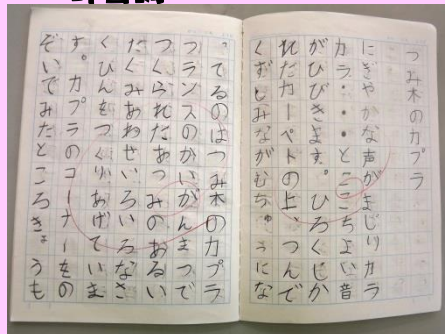 つみ木のカプラ
にぎやかな声がまじりカラ
カラ・・・とここちよい音
がひびきます。ひろくしか
れたカーペトの上、つんで
くずしみながむちゅうにな
ってるのはつみ木のカプラ
フランスのかいがんまつで
つくられたあつみのあるい
たくみあわせいろいろなさ
くひんをつくりあげていま
す。カプラのコーナーをの
ぞいでみたところきょうも